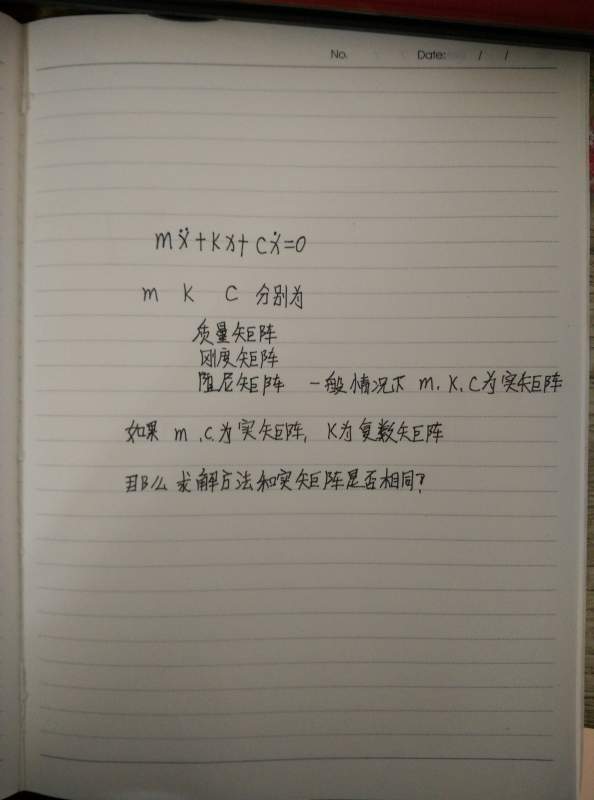 No. Date: / /
mẍ+Kx+Cẋ=0
m K C 分别为
质量矩阵
刚度矩阵
阻尼矩阵 一般情况下 m、K、C为实矩阵
如果 m、C为实矩阵, K为复数矩阵
那么求解方法和实矩阵是否相同?